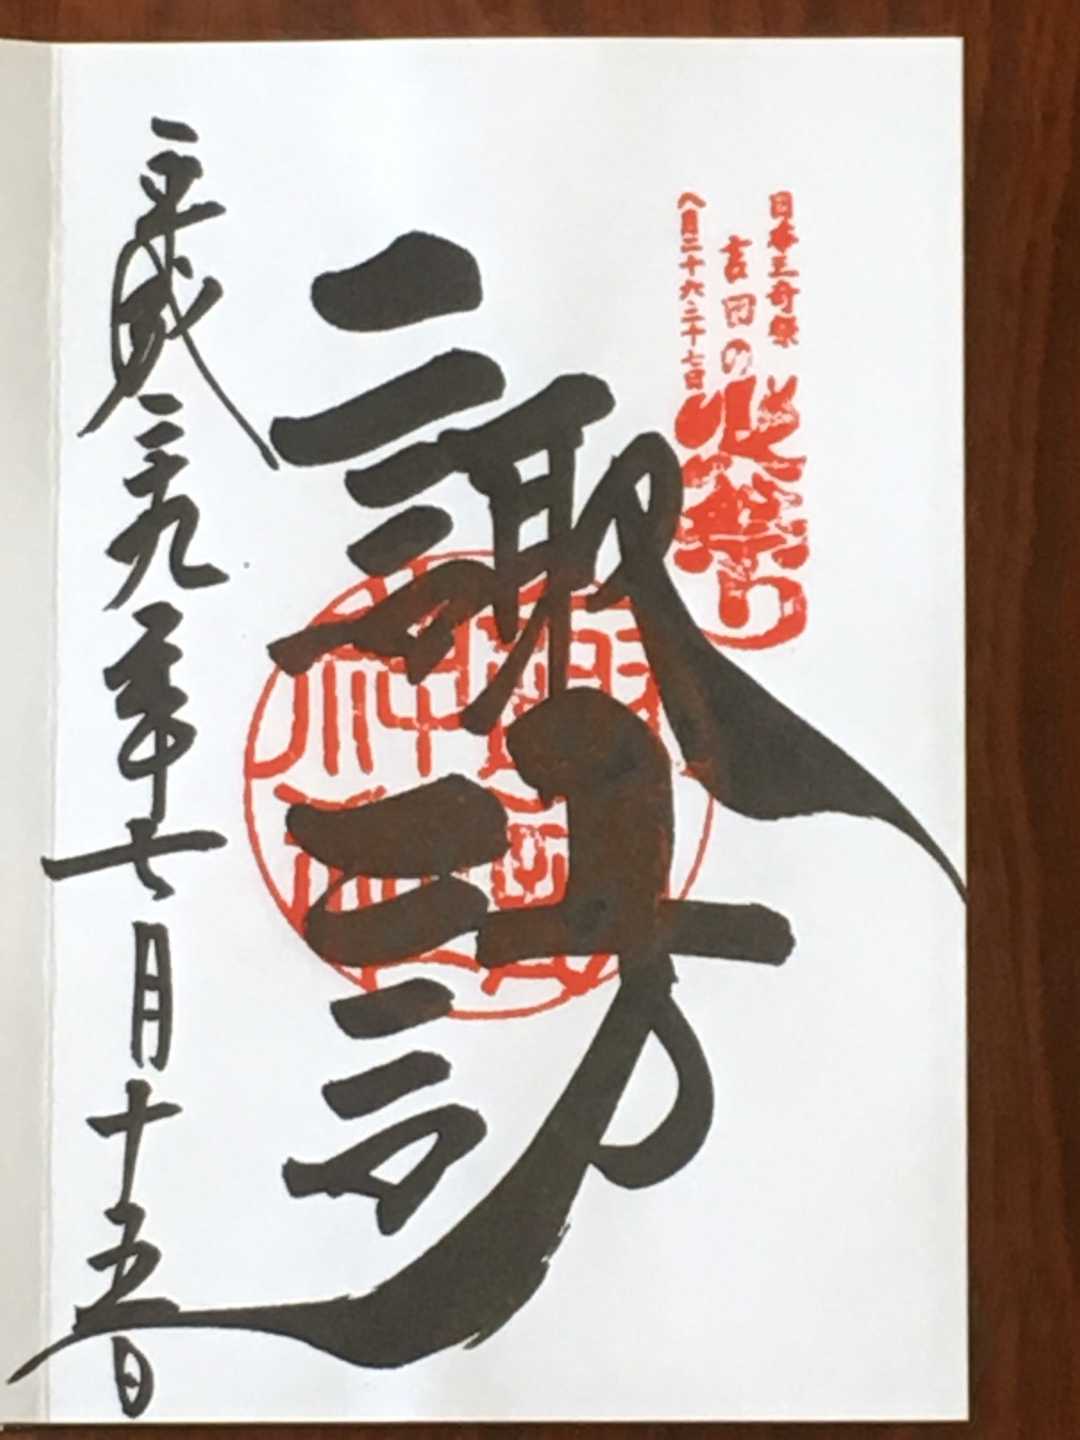 日本三奇祭
吉田の
火祭り
八月二十六二十七日
諏訪
平成二十九年七月十五日